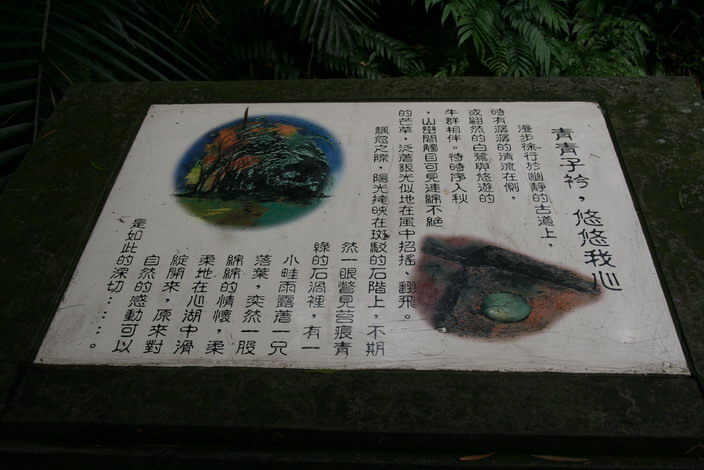 青青子衿，悠悠我心
漫步徐行於幽靜的古道上，
時有潺潺的清流在側，
或翩然的白鷺與悠遊的
牛群相伴。待時序入秋
，山巒間觸目可見連綿不絕
的芒草，泛著銀光似地在風中招搖、翻飛。
飄忽之際，陽光掩映在斑駁的石階上，不期
然一眼瞥見苔痕青
綠的石窪裡，有一
小畦雨露著一只
落葉，奕然一股
綿綿的情懷，柔
柔地在心湖中滑
綻開來，原來對
自然的感動可以
是如此的深切....。